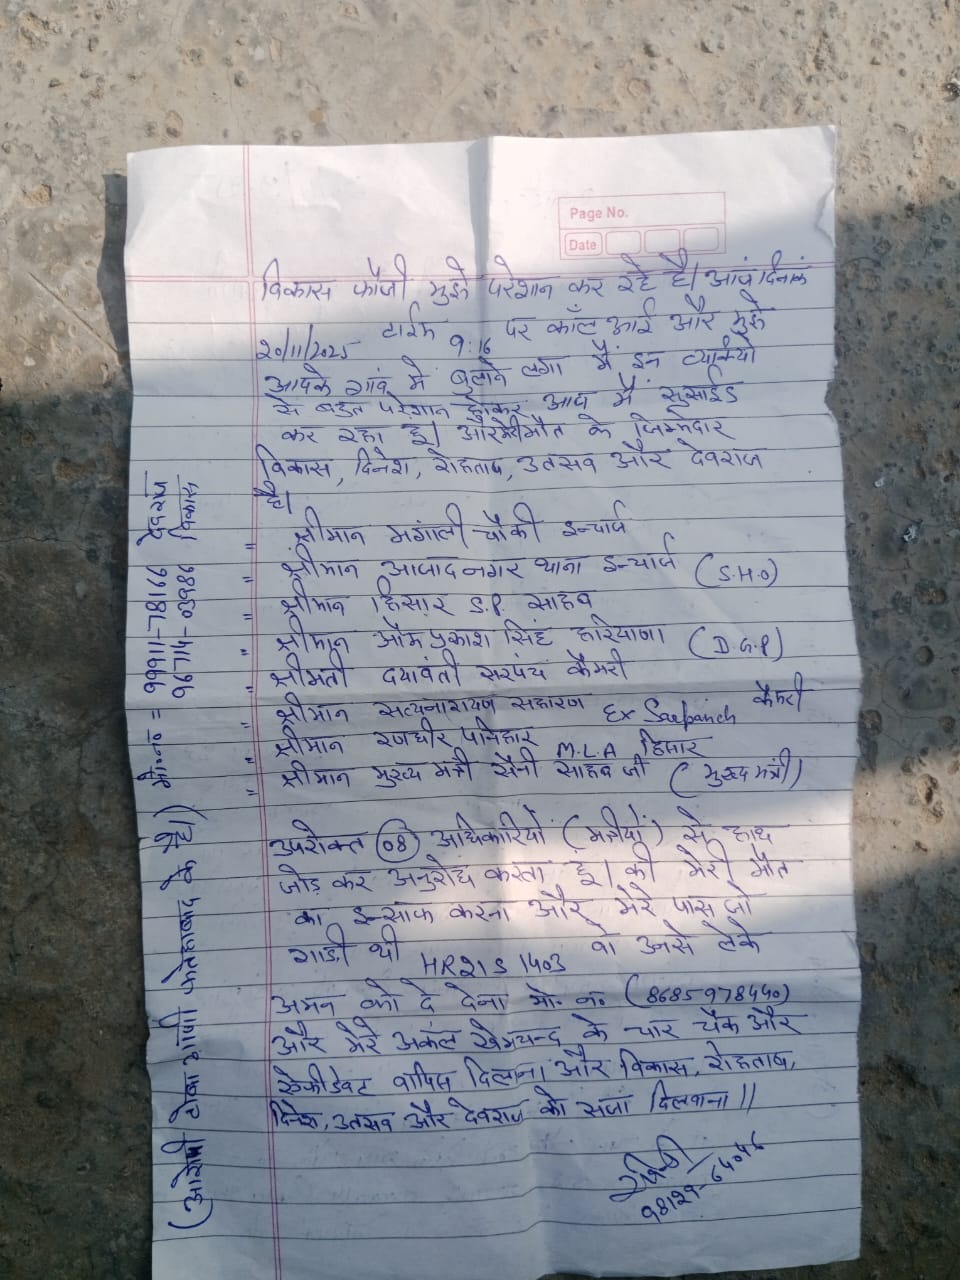 Page No.
Date
विकास फौजी मुझे परेशान कर रहे है। आज दिनांक
20/11/2025 टाईम 9:16 पर कॉल आई और मुझे
आपके गांव में बुलाने लगा मैं इन व्यक्तियो
से बहुत परेशान होकर आज मैं सुसाईड
कर रहा हूं। और मेरी मौत के जिम्मेदार
विकास, दिनेश, रोहताश, उत्सव और देवराज
है।
= श्रीमान मंगाली चौकी इन्चार्ज
= श्रीमान आजाद नगर थाना इन्चार्ज (S.H.O)
" श्रीमान हिसार S.P. साहब
" श्रीमान ओम प्रकाश सिंह हरियाणा (D.G.P)
" श्रीमती दयावंती सरपंच कैमरी
" श्रीमान सत्यनारायण सहारण Ex Sarpanch कैमरी
" श्रीमान रणधीर पनिहार M.L.A हिसार
" श्रीमान मुख्य मंत्री सैनी साहब जी (मुख्य मंत्री)
उपरोक्त 08 अधिकारियों (मंत्रीयों) से हाथ
जोड़ कर अनुरोध करता हूं। की मेरी मौत
का इन्साफ करना और मेरे पास जो
गाडी थी HR21S 1403 वो उनसे लेके
अमन को दे देना मो. नं. (8685978440)
और मेरे अकंल खेमचन्द के चार चैक और
ऐफीडेवट वापिस दिलाना और विकास, रोहताश,
दिनेश, उत्सव और देवराज को सजा दिलवाना ||
98129-64046
(आरोपी ढोबी गांव फतेहाबाद के है।) मो. नं. = 99911-78166 देवराज
96714-03986 विकास